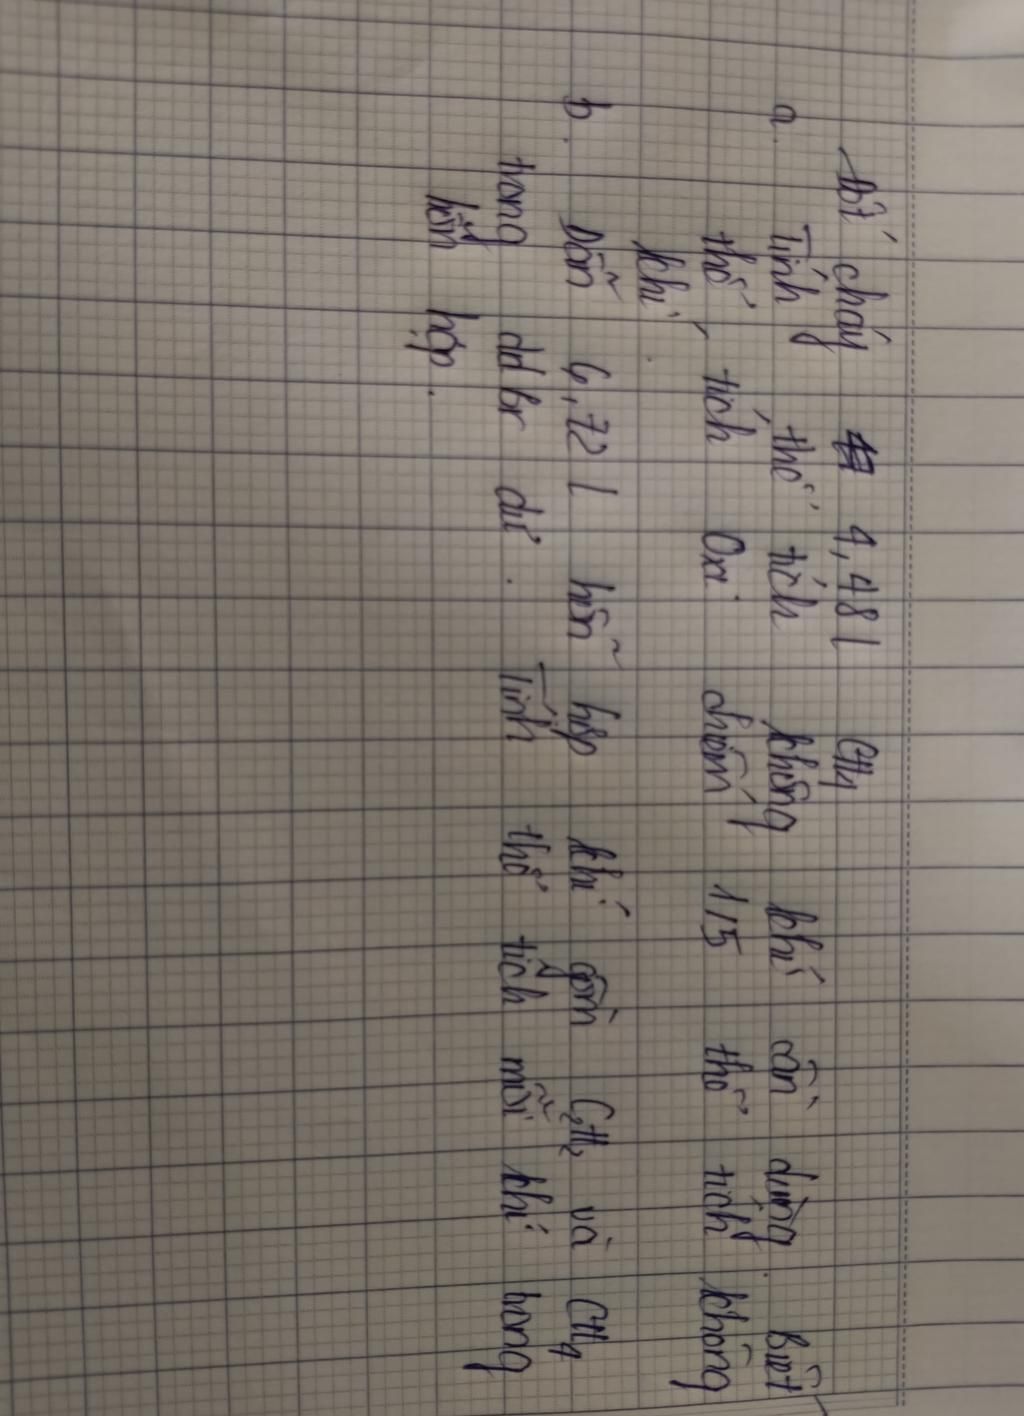 Đốt cháy 4,48 l CH4
a. Tính thể tích không khí cần dùng. Biết
thể tích Oxi chiếm 1/5 thể tích không
khí.
b. Dẫn 6,72 l hỗn hợp khí gồm C2H2 và CH4
trong dd br dư. Tính thể tích mỗi khí trong
hỗn hợp.